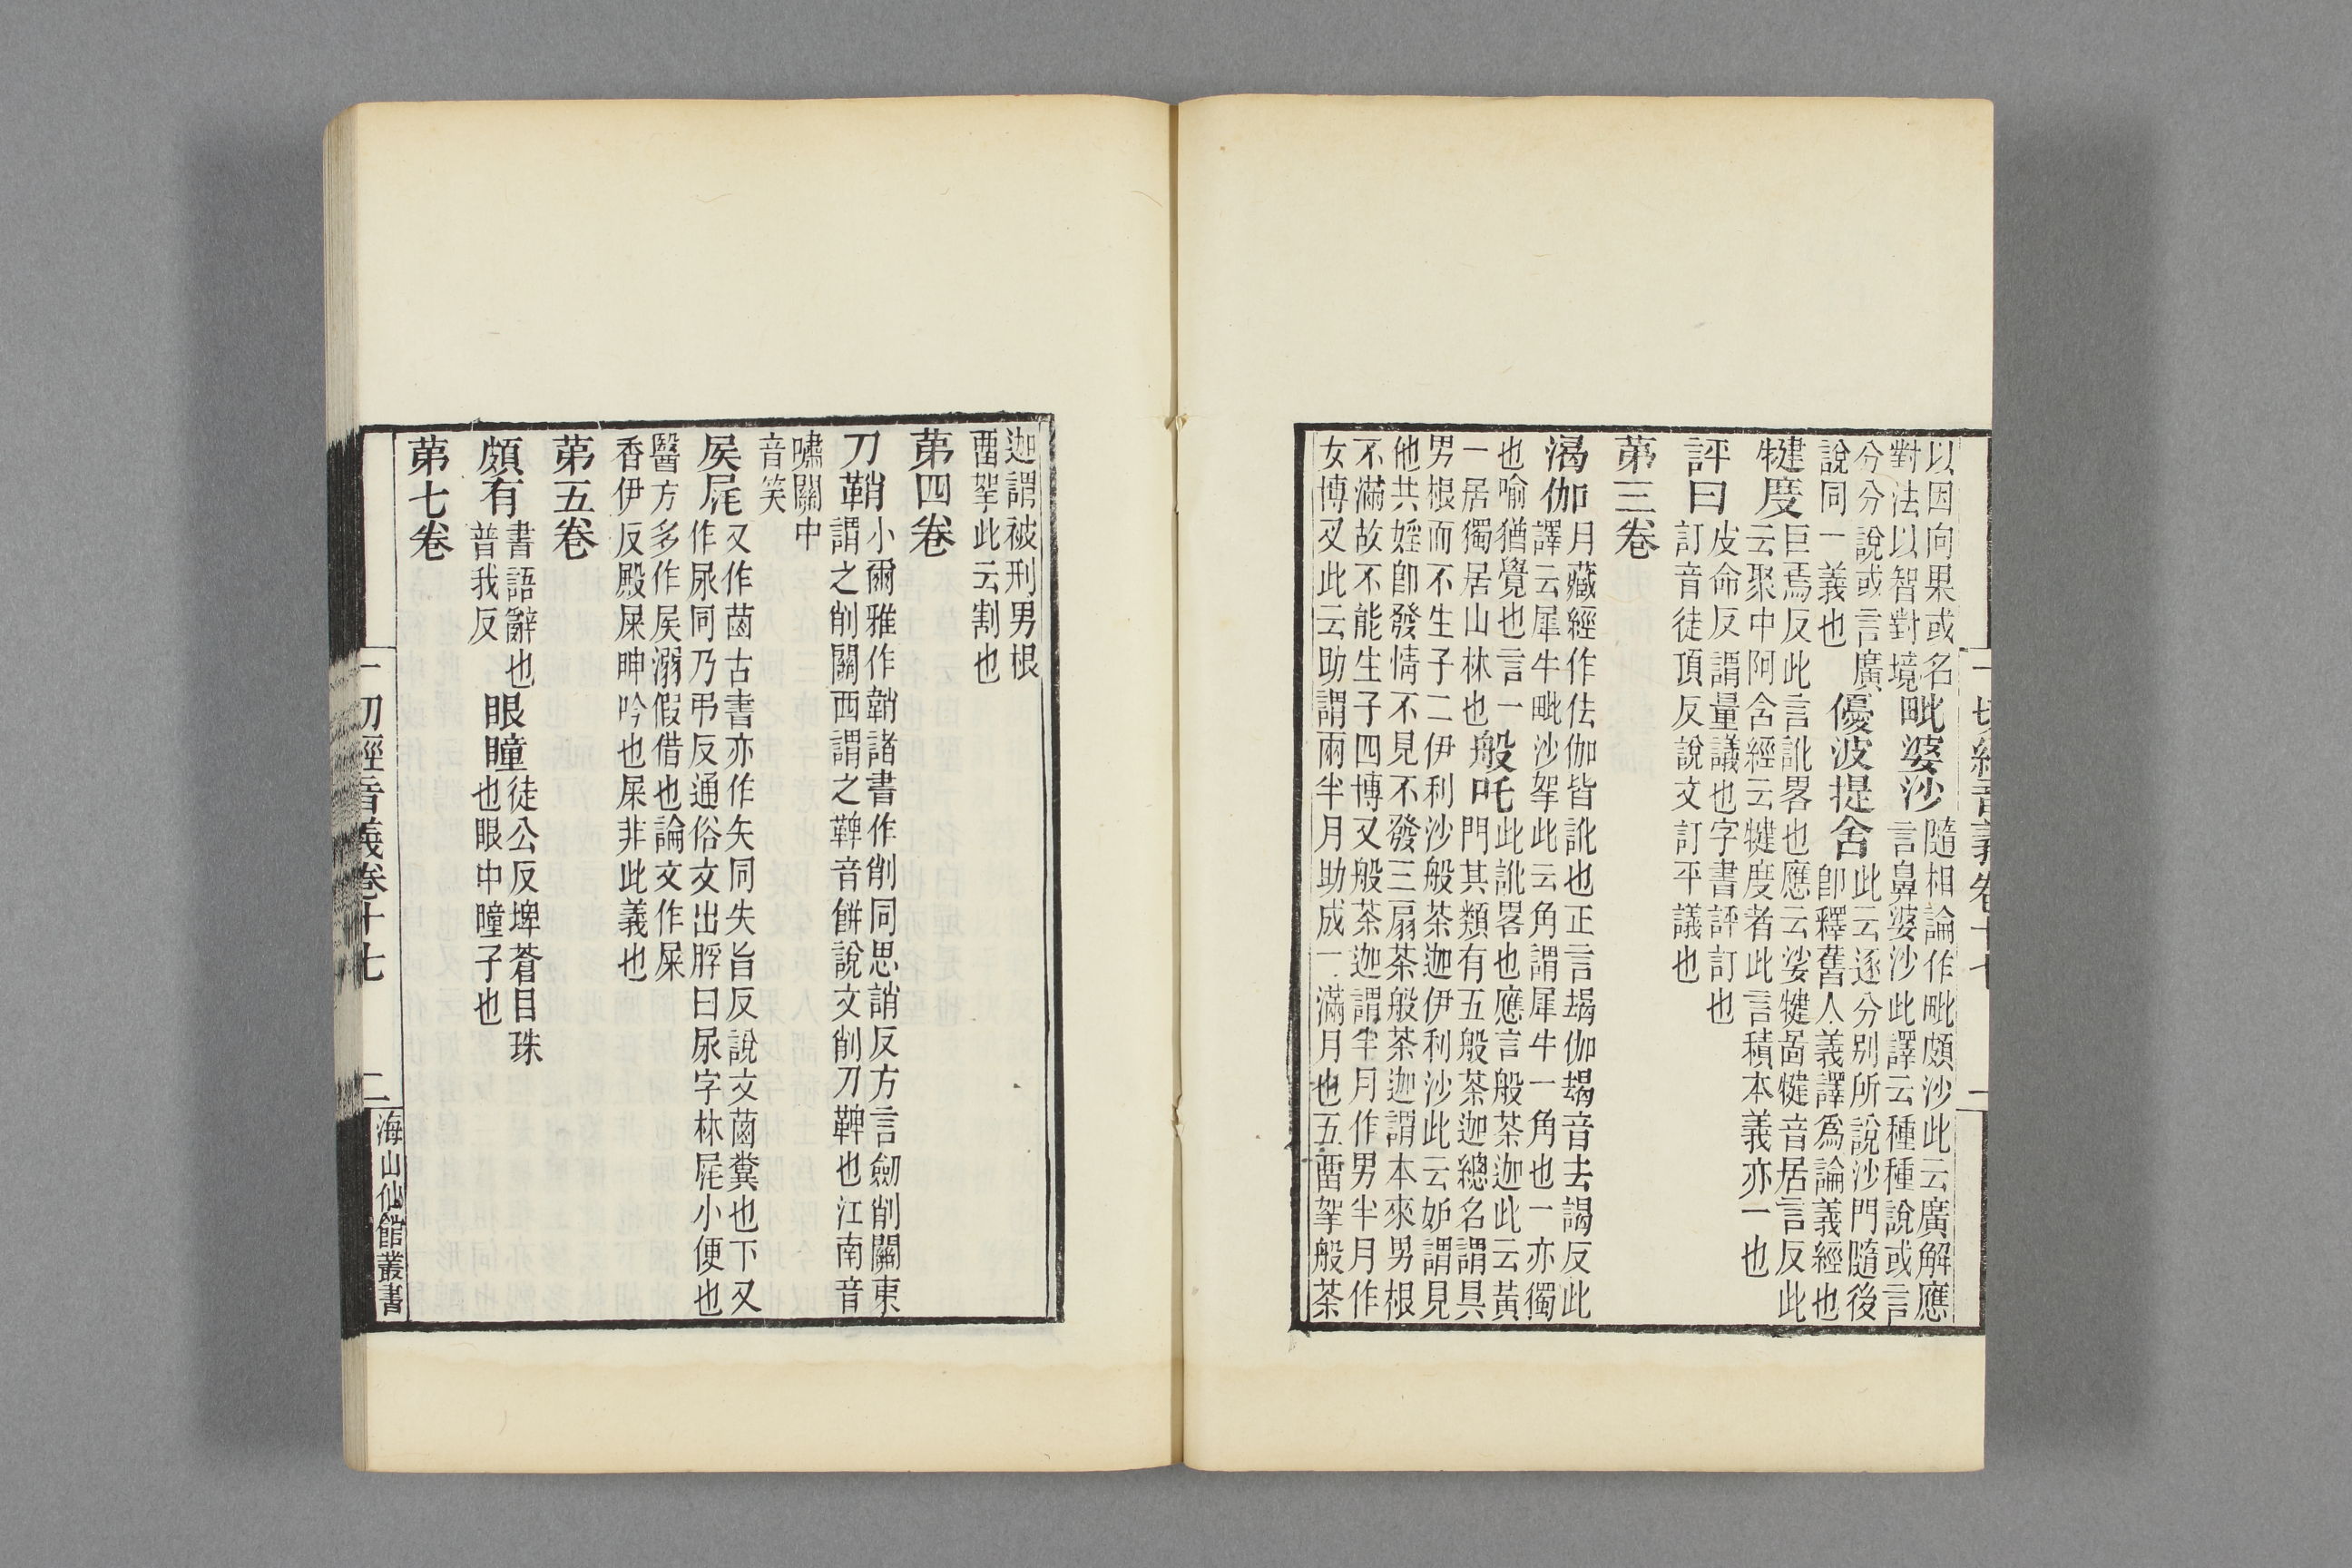 以因向果或名
對法以智對境
毗婆沙
隨相論作毗頗沙此云廣解應
言鼻婆沙此譯云種種說或言
分分說或言廣
說同一義也
優波提舍
此云逐分别所說沙門隨後
卽釋舊人義譯爲論義經也
犍度
巨焉反此言訛畧也應云娑犍圖犍音居言反此
云聚中阿含經云犍度者此言積本義亦一也
評曰
皮命反謂量議也字書評訂也
訂音徒頂反說文訂平議也
苐三卷
渴伽
月藏經作佉伽皆訛也正言朅伽朅音去謁反此
譯云犀牛毗沙拏此云角謂犀牛一角也一亦獨
也喻猶覺也言一
一居獨居山林也
般吒
此訛畧也應言般茶迦此云黃
門其類有五般茶迦總名謂具
男根而不生子二伊利沙般茶迦伊利沙此云妒謂見
他共婬卽發情不見不發三扇茶般茶迦謂本來男根
不滿故不能生子四博叉般茶迦謂半月作男半月作
女博叉此云助謂兩半月助成一滿月也五畱拏般茶
一切經音義卷十七
一
迦謂被刑男根
畱拏此云割也
苐四卷
刀鞘
小爾雅作韒諸書作削同思誚反方言劒削關東
謂之削關西謂之鞞音餅說文削刀鞞也江南音
嘯關中
音笑
屎㞙
又作菡古書亦作矢同失旨反說文菡糞也下又
作尿同乃弔反通俗文出脬曰尿字林㞙小便也
醫方多作屎溺假借也論文作屎
香伊反殿屎呻吟也屎非此義也
苐五卷
頗有
書語辭也
普我反
眼瞳
徒公反埤蒼目珠
也眼中瞳子也
苐七卷
一切經音義卷十七
二
海山仙館叢書